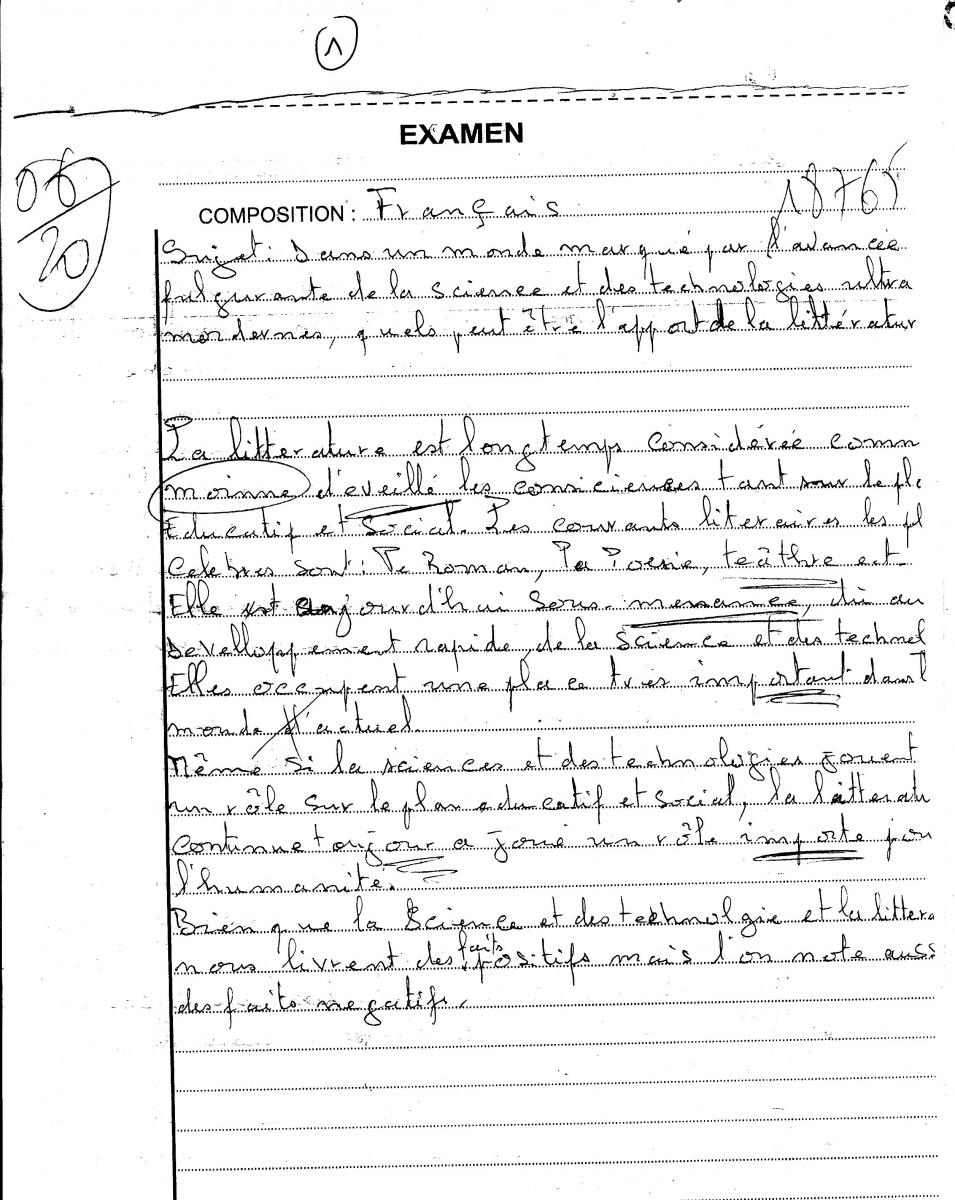 1
EXAMEN
06/20
18765
COMPOSITION : Français
Sujet : Dans un monde marqué par l'avancée
fulgurante de la science et des technologies ultra
mordernes, quels peut être l'apport de la littératur
La litterature est longtemps considérée comm
moinne d'éveillé les consiciences tant sur le pl
Educatif et Social. Les courants literaires les pl
Celebres sont : Le Roman, La Poesie, teâthre ect.
Elle est aujourd'hui sous-menance, dû au
Developpement rapide, de la science et des technol
Elles occupent une place tres important dans l
monde d'actuel.
Même si la sciences et des technologies jouent
un rôle sur le plan educatif et social, la litteratu
continue toujour a joué un rôle importe pou
l'humanité.
Bien que la Science et des technolgie et la littera
nous livrent des faits positifs mais l'on note auss
des faits negatifs.